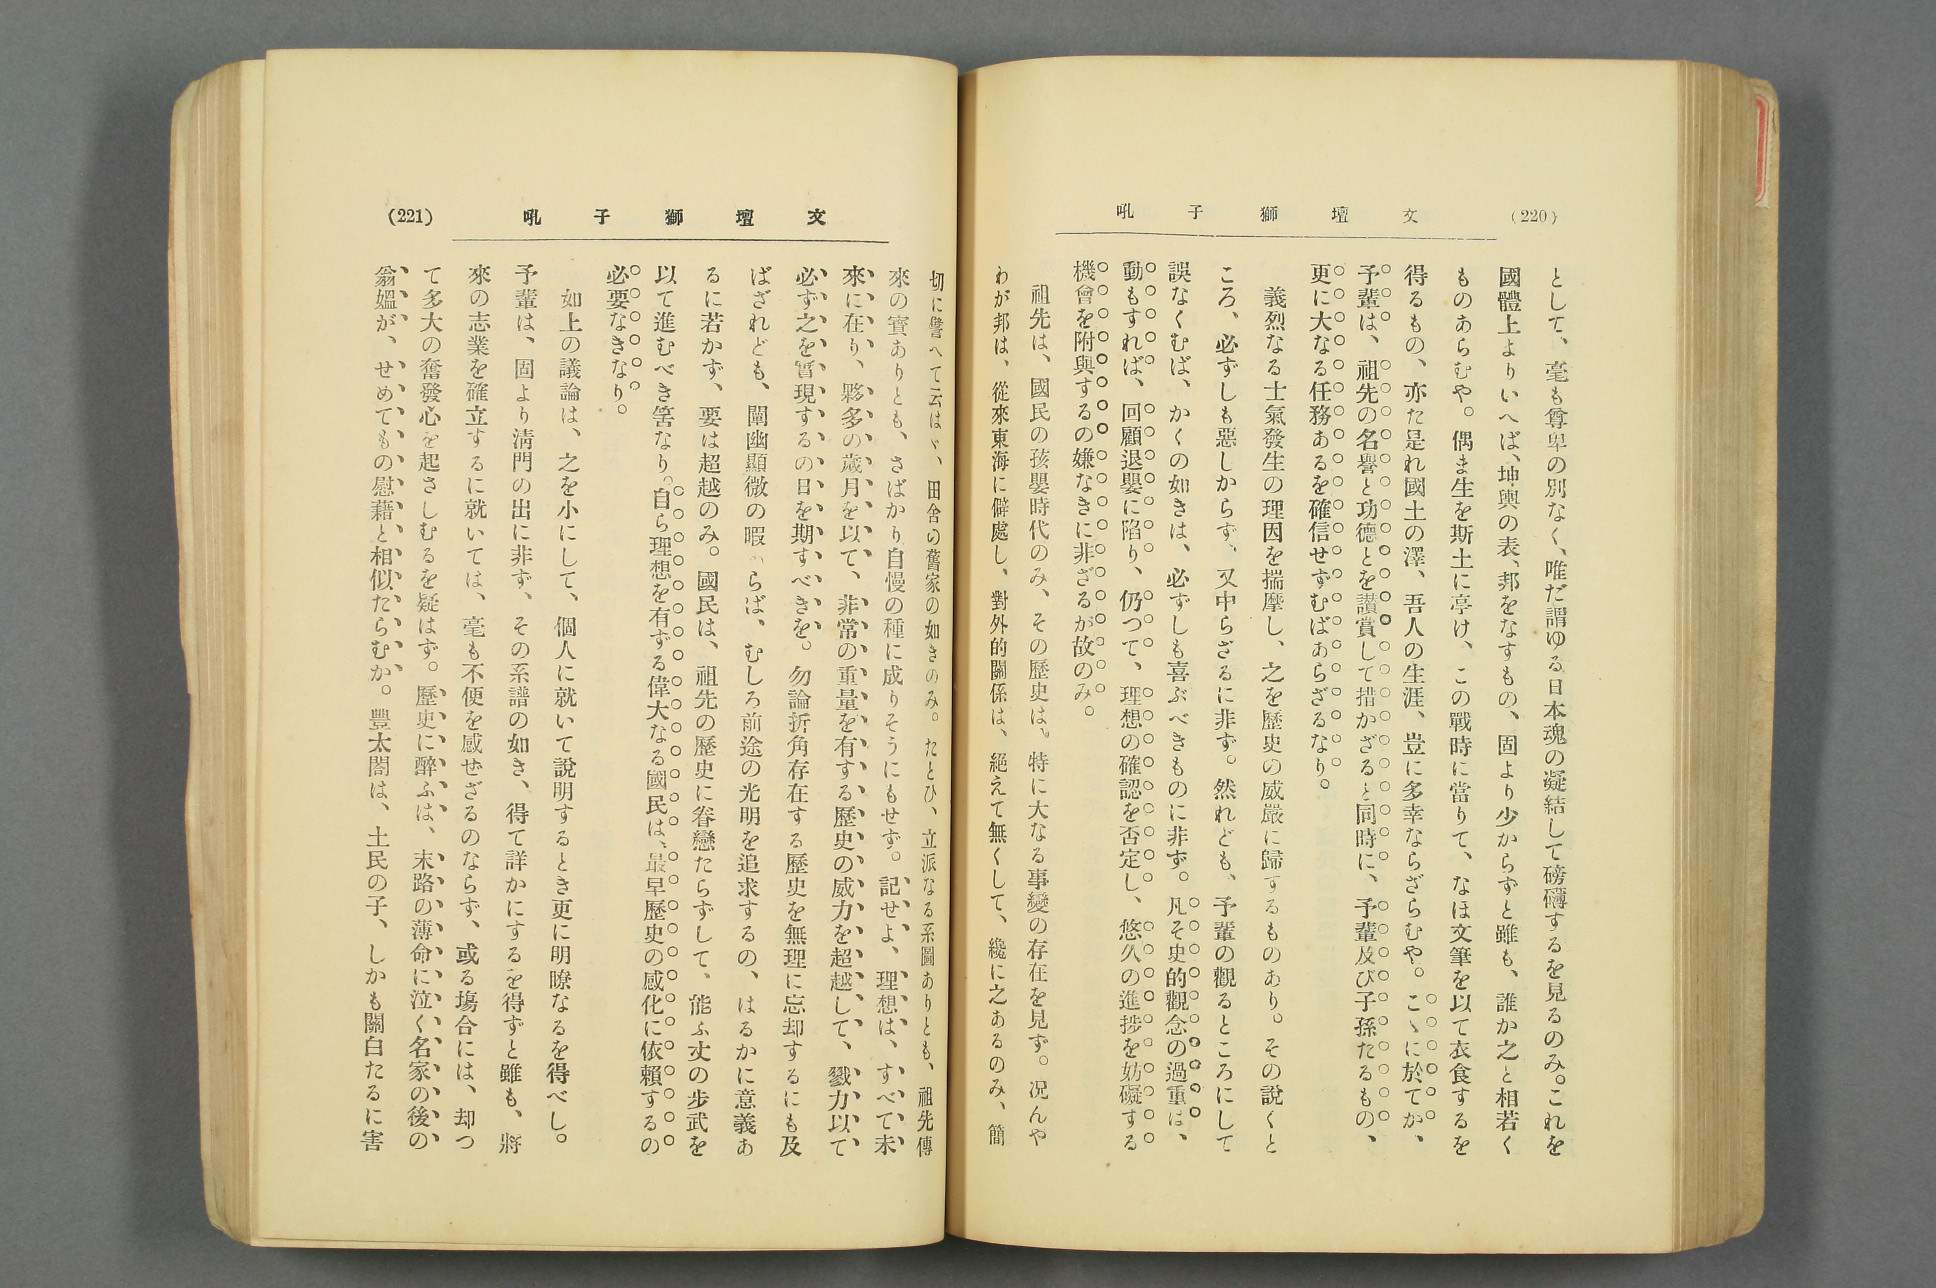 (220)
文壇獅子吼
として、毫も尊卑の別なく、唯だ謂ゆる日本魂の凝結して磅礴するを見るのみ。これを
國體上よりいへば、坤輿の表、邦をなすもの、固より少からずと雖も、誰か之と相若く
ものあらむや。偶ま生を斯土に享け、この戰時に當りて、なほ文筆を以て衣食するを
得るもの、亦た是れ國土の澤、吾人の生涯、豈に多幸ならざらむや。こゝに於てか、
予輩は、祖先の名譽と功德とを讃賞して措かざると同時に、予輩及び子孫たるもの、
更に大なる任務あるを確信せずむばあらざるなり。
義烈なる士氣發生の理因を揣摩し、之を歷史の威嚴に歸するものあり。その說くと
ころ、必ずしも惡しからず、又中らざるに非ず。然れども、予輩の觀るところにして
誤なくむば、かくの如きは、必ずしも喜ぶべきものに非ず。凡そ史的觀念の過重は、
動もすれば、回顧退嬰に陷り、仍つて、理想の確認を否定し、悠久の進捗を妨礙する
機會を附與するの嫌なきに非ざるが故のみ。
祖先は、國民の孩嬰時代のみ、その歷史は。特に大なる事變の存在を見ず。况んや
わが邦は、從來東海に僻處し、對外的關係は、絕えて無くして、纔に之あるのみ、簡
(221)
文壇獅子吼
切に譬へて云はゞ、田舍の舊家の如きのみ。たとひ、立派なる系圖ありとも、祖先傳
來の寳ありとも、さばかり自慢の種に成りそうにもせず。記せよ、理想は、すべて未
來に在り、夥多の歲月を以て、非常の重量を有する歷史の威力を超越して、戮力以て
必ず之を實現するの日を期すべきを。勿論折角存在する歷史を無理に忘却するにも及
ばざれども、闡幽顯微の暇らば、むしろ前途の光明を追求するの、はるかに意義あ
るに若かず、要は超越のみ。國民は、祖先の歷史に眷戀たらずして、能ふ丈の步武を
以て進むべき筈なり。自ら理想を有する偉大なる國民は、最早歷史の感化に依賴するの
必要なきなり。
如上の議論は、之を小にして、個人に就いて說明するとき更に明瞭なるを得べし。
予輩は、固より淸門の出に非ず、その系譜の如き、得て詳かにするを得ずと雖も、將
來の志業を確立するに就いては、毫も不便を感ぜざるのならず、或る塲合には、却つ
て多大の奮發心を起さしむるを疑はず。歷史に醉ふは、末路の薄命に泣く名家の後の
翁媼が、せめてもの慰藉と相似たらむか。豐太閤は、土民の子、しかも關白たるに害